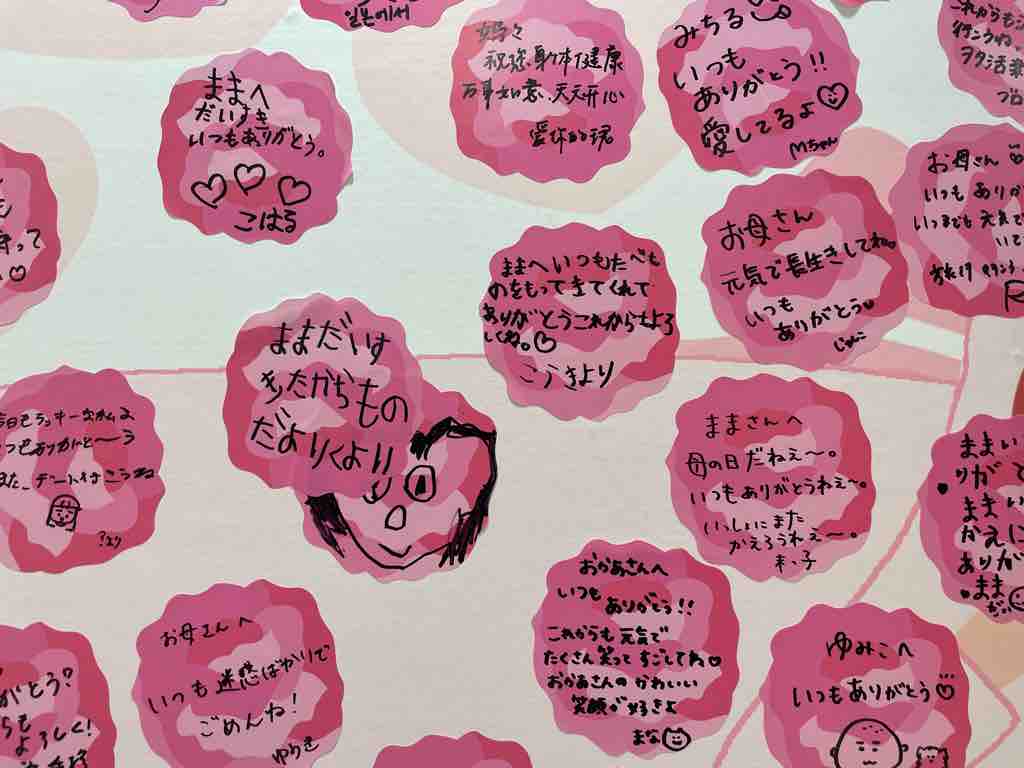 일본에서
妈々
祝您身体健康
万事如意、天天开心
みちる
いつも
ありがとう!!
愛してるよ
Mちゃん
これからも
ヲタ活
ままへ
だいすき
いつもありがとう。
こはる
お母さん
いつもありが
いつまでも元気で
お母さん
元気で長生きしてね。
いつも
ありがとう
じゅんこ
ままへいつもたべも
のをもってきてくれて
ありがとうこれからもよろ
しくね。
こうきより
ままだいす
きたからもの
だよりくより
ままさんへ
母の日だねぇ〜。
いつもありがとうねぇ〜。
いっしょにまた
がえろうねぇ〜。
いつもありがと〜う
また、デート行こうね
ままい
りがと
ままい
かえに
ありが
まま
おかあさんへ
いつも
ありがとう!!
これからも元気で
たくさん笑ってすごしてね
おかあさんのかわいい
笑顔が好きよ
まな
お母さんへ
いつも迷惑ばかりで
ごめんね!
ゆうき
がとう?
らも
よろしく!
ゆみこへ
いつもありがとう